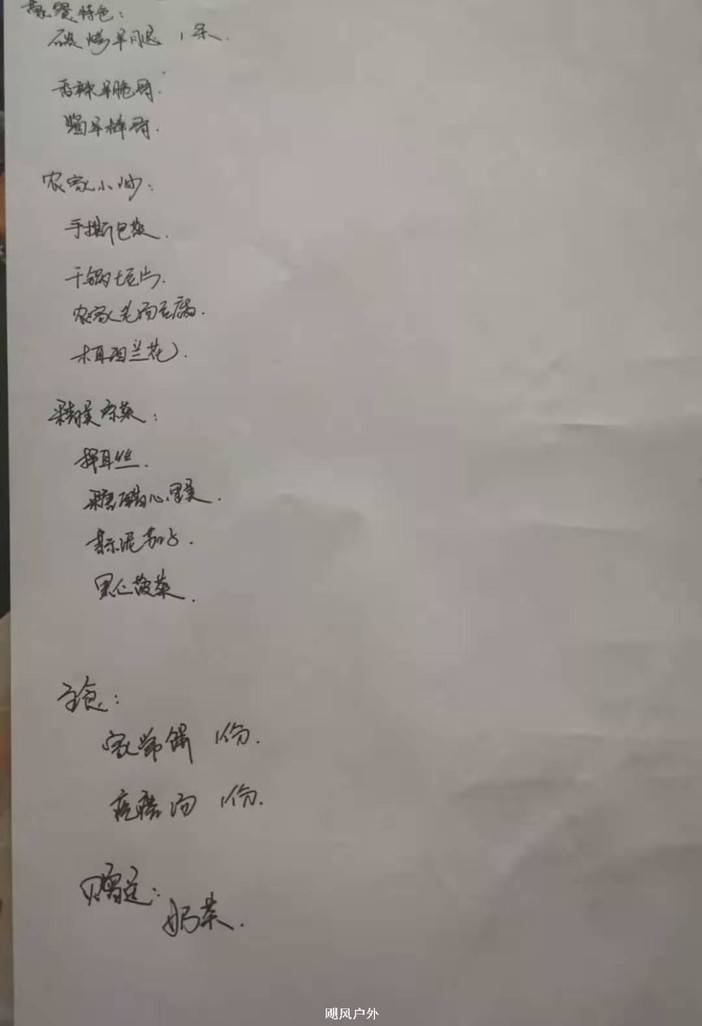 蒙餐特色:
碳烤羊腿 1条.
香辣羊脆骨.
酱羊棒骨.
农家小炒:
手撕包菜.
干锅土豆片.
农家老汤豆腐.
木耳西兰花.
精美凉菜:
拌耳丝.
糖醋心里美.
蒜泥茄子.
果仁菠菜.
主食:
家常饼 1份.
疙瘩汤 1份.
赠送:
奶茶.
飓风户外